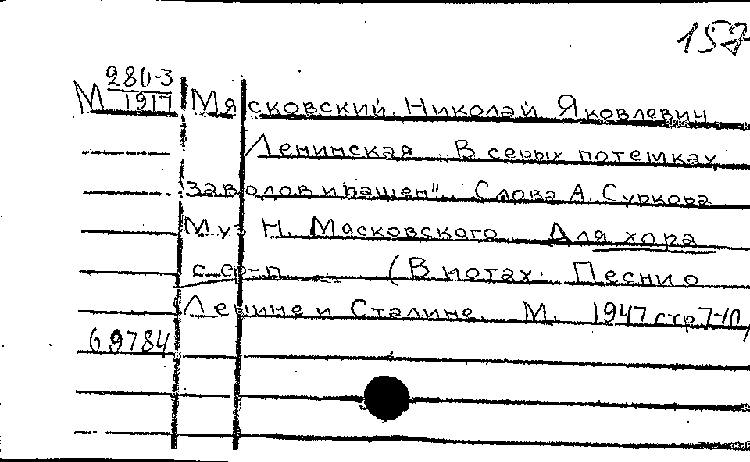 157
280-3
М 1917 Мясковский, Николай Яковлевич
Ленинская. В серых потемках
заводов и башен". Слова А. Суркова
Муз Н. Мясковского Для хора
с ср-п (В нотах: Песни о
Ленине и Сталине. М. 1947 стр 7-10,
69784